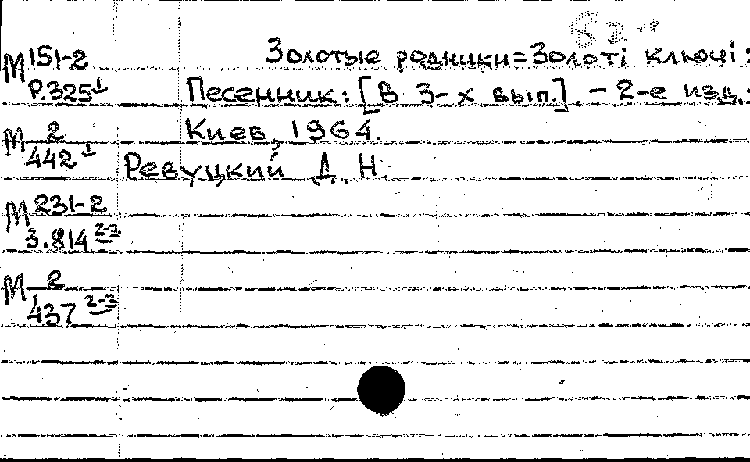 М 151-2
Р.325 1
Золотые родники=Золоті ключі:
Песенник: [В 3-х вып.]. - 2-е изд.:
Киев, 1964.
М 2
442 1
Ревуцкий Д. Н.
М 231-2
3.814 2-3
М 2
437 2-3